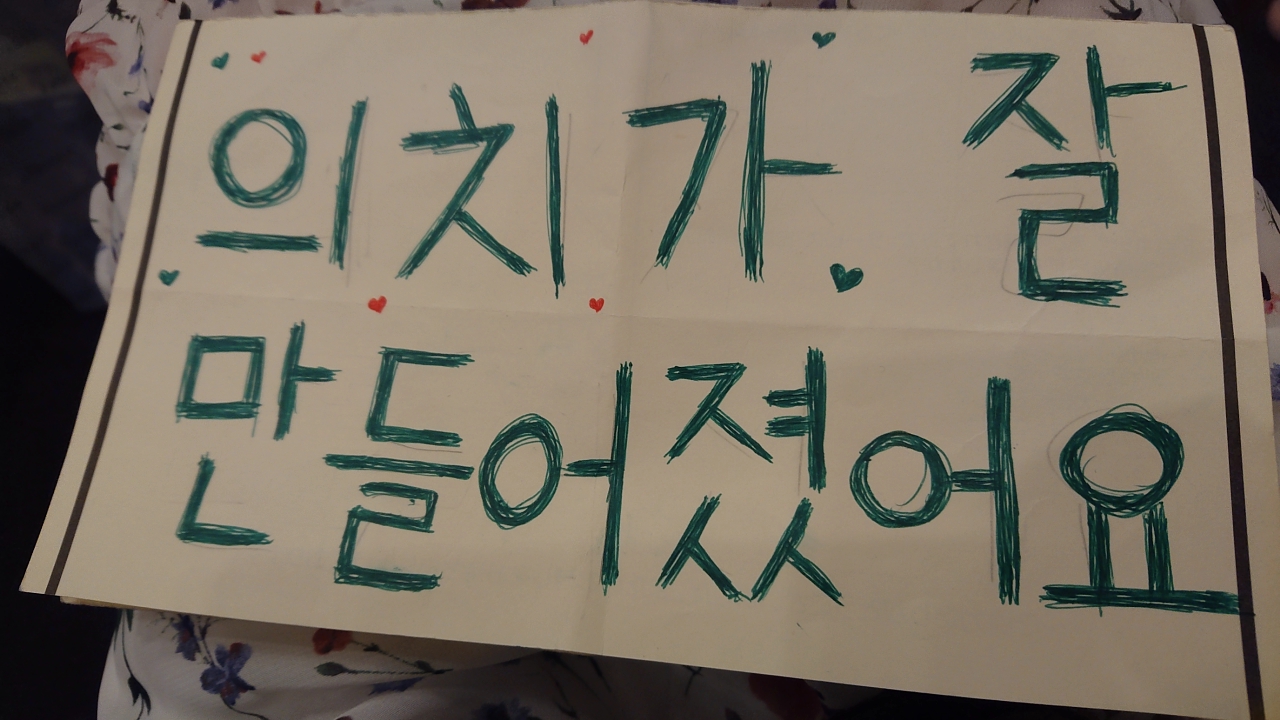 의치가 잘
만들어졌어요